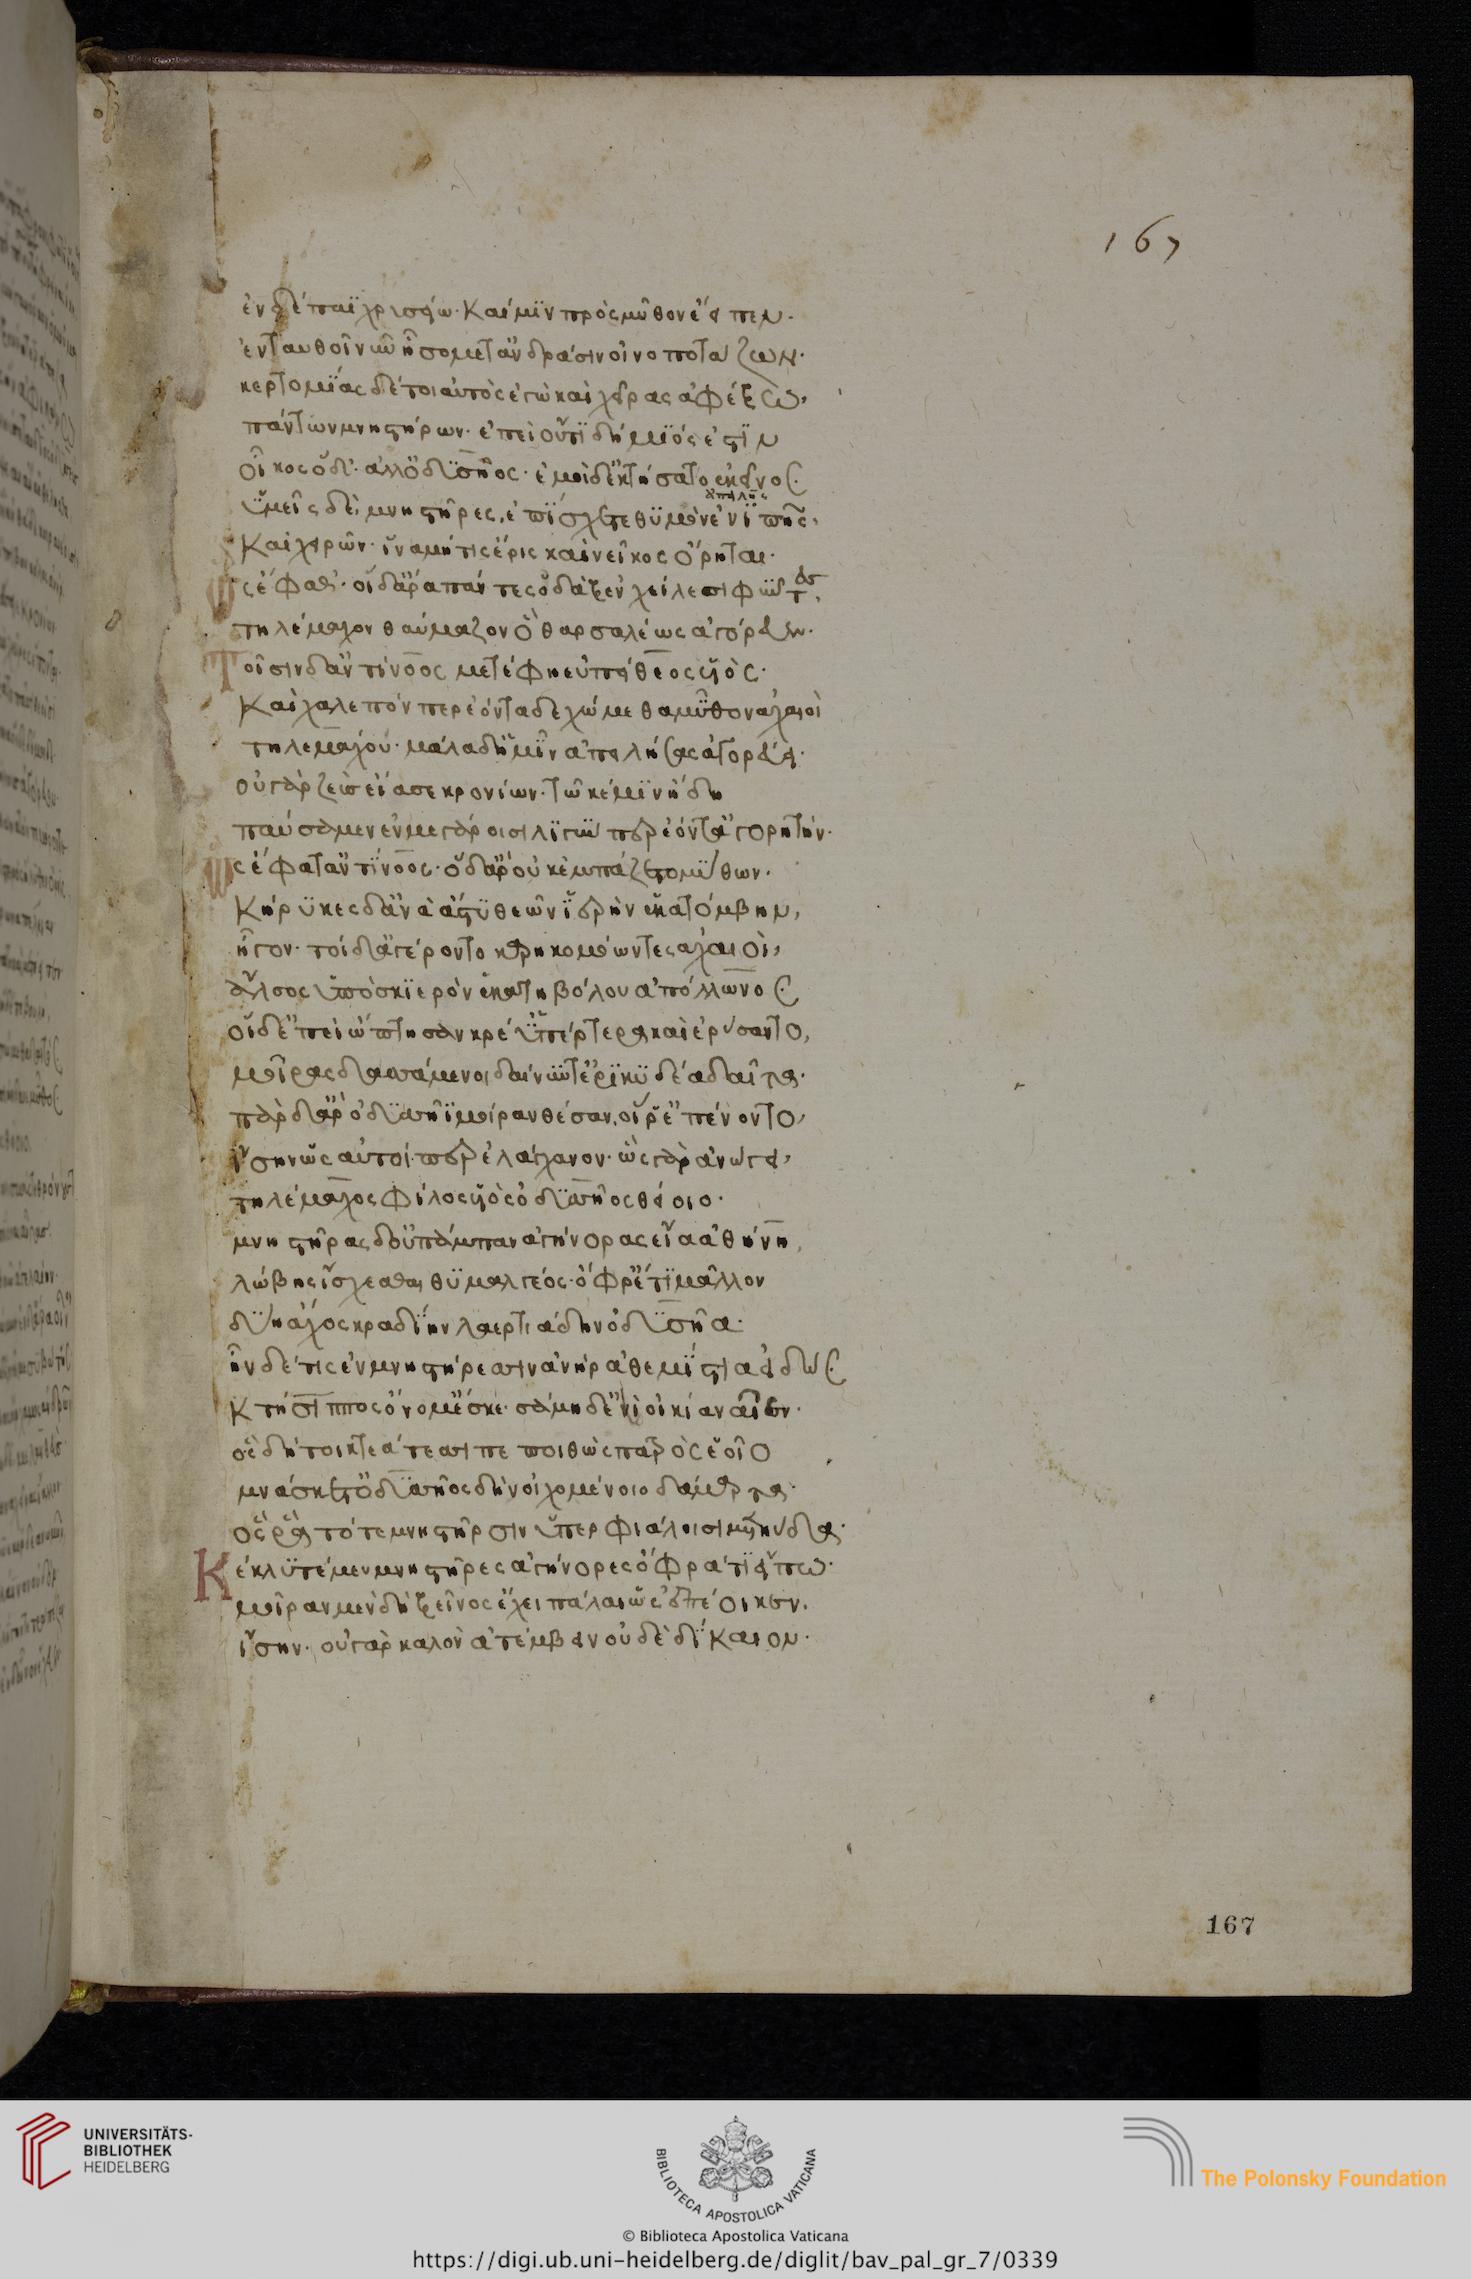 167
ἐν δέπαϊ χρυσέω· Καί μϊν πρὸς μῦθον ἔειπεν·
ἐνταυθοῖ νῦν ἧσο μετ' ἀνδράσιν οἰνοποταζων·
κερτομΐας δέ τοι αὐτὸς ἐγὼ καὶ χεῖρας ἀφέξω,
πάντων μνηστήρων· ἐπεὶ οὔτϊ δήμϊός ἐστϊν
οἶκος ὅδ'· ἀλλ' ὀδυσῆος· ἐμοὶ δ' ἐκτήσατο ἐκεῖνος
ὑμεῖς δὲ, μνηστῆρες, ἐπΐσχετε θϋμὸν ἐνϊπῆς,
ἀπειλῆς
Καὶ χειρῶν· ἵνα μή τις ἔρις καὶ νεῖκος ὄρηται·
Ὣς ἔφαθ'· οἱ δ' ἄρα πάντες ὀδὰξ ἐν χείλεσι φύντες,
τηλέμαχον θαύμαζον ὃ θαρσαλέως ἀγόρευεν·
Τοῖσιν δ' ἀντίνοος μετέφη εὐπείθεος υἱός·
Καὶ χαλεπόν περ ἐόντα δεχώμεθα μῦθον ἀχαιοὶ
τηλεμάχου· μάλα δ' ἡμῖν ἀπειλήσας ἀγορεύει·
οὐ γὰρ ζεὺς εἴασε κρονίων· τῶ κέ μϊν ἤδη
παύσαμεν ἐν μεγάροισι λϊγύν περ ἐόντ' ἀγορητήν·
Ὣς ἔφατ' ἀντΐνοος· ὁ δ' ἄρ' οὐκ ἐμπάζετο μύθων·
Κήρϋκες δ' ἀνὰ ἄστϋ θεῶν ἱερὴν ἑκατόμβην,
ἦγον· τοὶ δ' ἀγέροντο καρηκομόωντες ἀχαιοὶ,
ἄλσος ὕπο σκϊερὸν ἑκατηβόλου ἀπόλλωνος
οἱ δ' ἐπεὶ ὤπτησαν κρέ' ὑπέρτερα καὶ ἐρύσαντο,
μοίρας δασσάμενοι δαίνυντ' ἐρϊκϋδέα δαῖτα·
πὰρ δ' ἄρ' ὀδυσῆϊ μοίραν θέσαν, οἵ ῥ' ἐπένοντο,
ἴσην ὡς αὐτοί περ ἐλάγχανον· ὣς γὰρ ἀνώγει,
τηλέμαχος φίλος υἱὸς ὀδυσῆος θείοιο·
μνηστῆρας δ' οὐ πάμπαν ἀγήνορας εἴα ἀθήνη,
λώβης ἴσχεσθαι θϋμαλγέος· ὄφρ' ἔτϊ μᾶλλον
δύη ἄχος κραδΐην λαερτιάδην ὀδυσῆα·
ἦν δέ τις ἐν μνηστήρεσσιν ἀνὴρ ἀθεμΐστια εἰδώς
Κτήσιππος ὄνομ' ἔσκε· σάμη δ' ἐνὶ οἰκία ναῖεν·
ὃς δή τοι κτεάτεσσι πεποιθὼς πατρὸς ἑοῖο
μνάσκετ' ὀδυσσῆος δὴν οἰχομένοιο δάμαρτα·
ὅς ῥα τότε μνηστῆρσιν ὑπερφιάλοισι μετηύδα·
Κέκλϋτέ μευ μνηστῆρες ἀγήνορες ὄφρά τϊ εἴπω·
μοῖραν μὲν δὴ ξεῖνος ἔχει πάλαι ὡς ἐπέοικεν,
ἴσην· οὐ γὰρ καλὸν ἀτέμβειν οὐδὲ δΐκαιον·
167
UNIVERSITÄTS-
BIBLIOTHEK
HEIDELBERG
BIBLIOTECA APOSTOLICA VATICANA
The Polonsky Foundation
© Biblioteca Apostolica Vaticana
https://digi.ub.uni-heidelberg.de/diglit/bav_pal_gr_7/0339